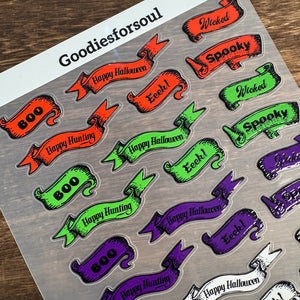 Goodiesforsoul
Wicked
BOO
Happy Halloween
Spooky
Happy Hunting
Eeek!
Wicked
BOO
Happy Halloween
Spooky
Happy Hunting
Eeek!
Wicked
BOO
Happy Halloween
Spooky
Happy Hunting
Eeek!
Happy Halloween